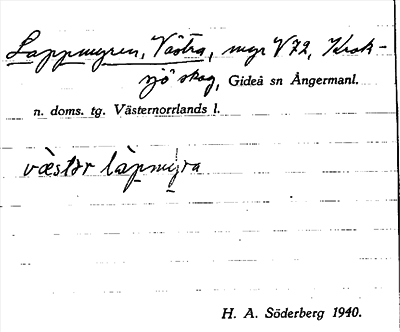 Lappmyren, Västra, myr V72, Krok-
sjö skog, Gideå sn Ångermanl.
n. doms. tg. Västernorrlands l.
væstər làpmyra
H. A. Söderberg 1940.